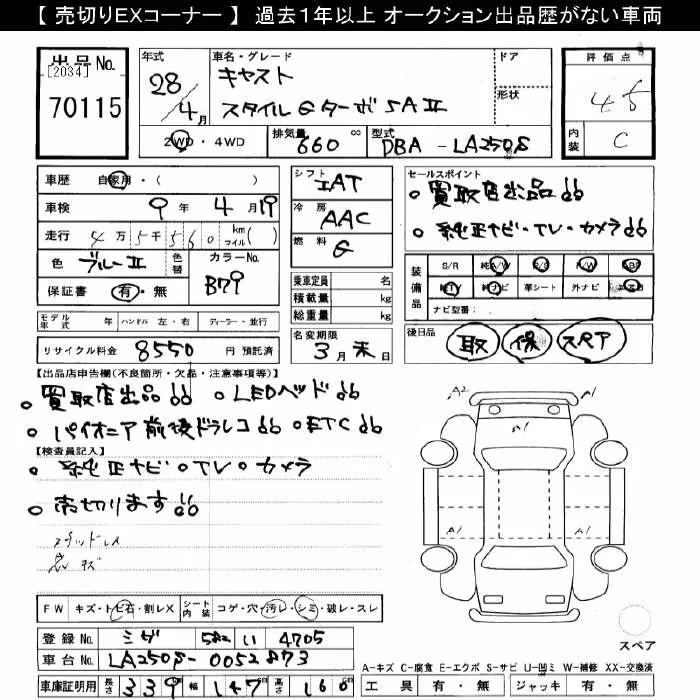 【 売切りEXコーナー 】 過去1年以上 オークション出品歴がない車両
出品No.
[2034]
70115
年式
28
4月
車名・グレード
キャスト
スタイルGターボSAⅡ
ドア
形状
評価点
4.5
内装
C
2WD・4WD
排気量
660 cc
型式
DBA - LA250S
車歴 自家用・( )
車検 9年 4月19
走行 4万5千560km マイル( )
色 ブルーⅡ 色替
カラーNo.
B79
保証書 有・無
シフト
IAT
冷房
AAC
燃料
G
乗車定員 名
積載量 kg
総重量 kg
セールスポイント
。買取店出品!!
。純正ナビ・TV・カメラ!!
装備品
S/R 純A/W P/S P/W ABS
純TV 純ナビ 革シート 外ナビ
ナビ型番:
モデル年式 年 ハンドル 左・右 ディーラー・並行
リサイクル料金 8550 円預託済
名変期限
3月末日
後日品
取 保 スペア
【出品店申告欄(不良箇所・欠品・注意事項等)】
。買取店出品!! 。LEDヘッド!!
。パイオニア前後ドラレコ!! 。ETC!!
【検査員記入】
。純正ナビ。TV。カメラ
。売切ります!!
スタッドレス
A2
A1
A1
A1
FW キズ・トビ石・割レX
シート内装 コゲ・穴・汚レ・シミ・破レ・スレ
登録No. 582 い 4705
車台No. LA250S-0052873
車庫証明用 長さ 339 幅 147 高さ 160
スペア
A-キズ C-腐食 E-エクボ S-サビ U-凹ミ W-補修 XX-交換済
工具 有・無 ジャッキ 有・無